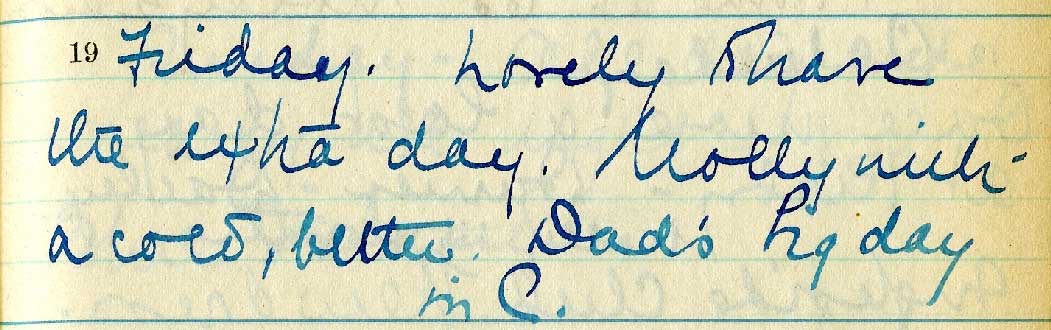 19 Friday. Lovely to have
the extra day. Molly with
a cold, better. Dad's big day
in C.